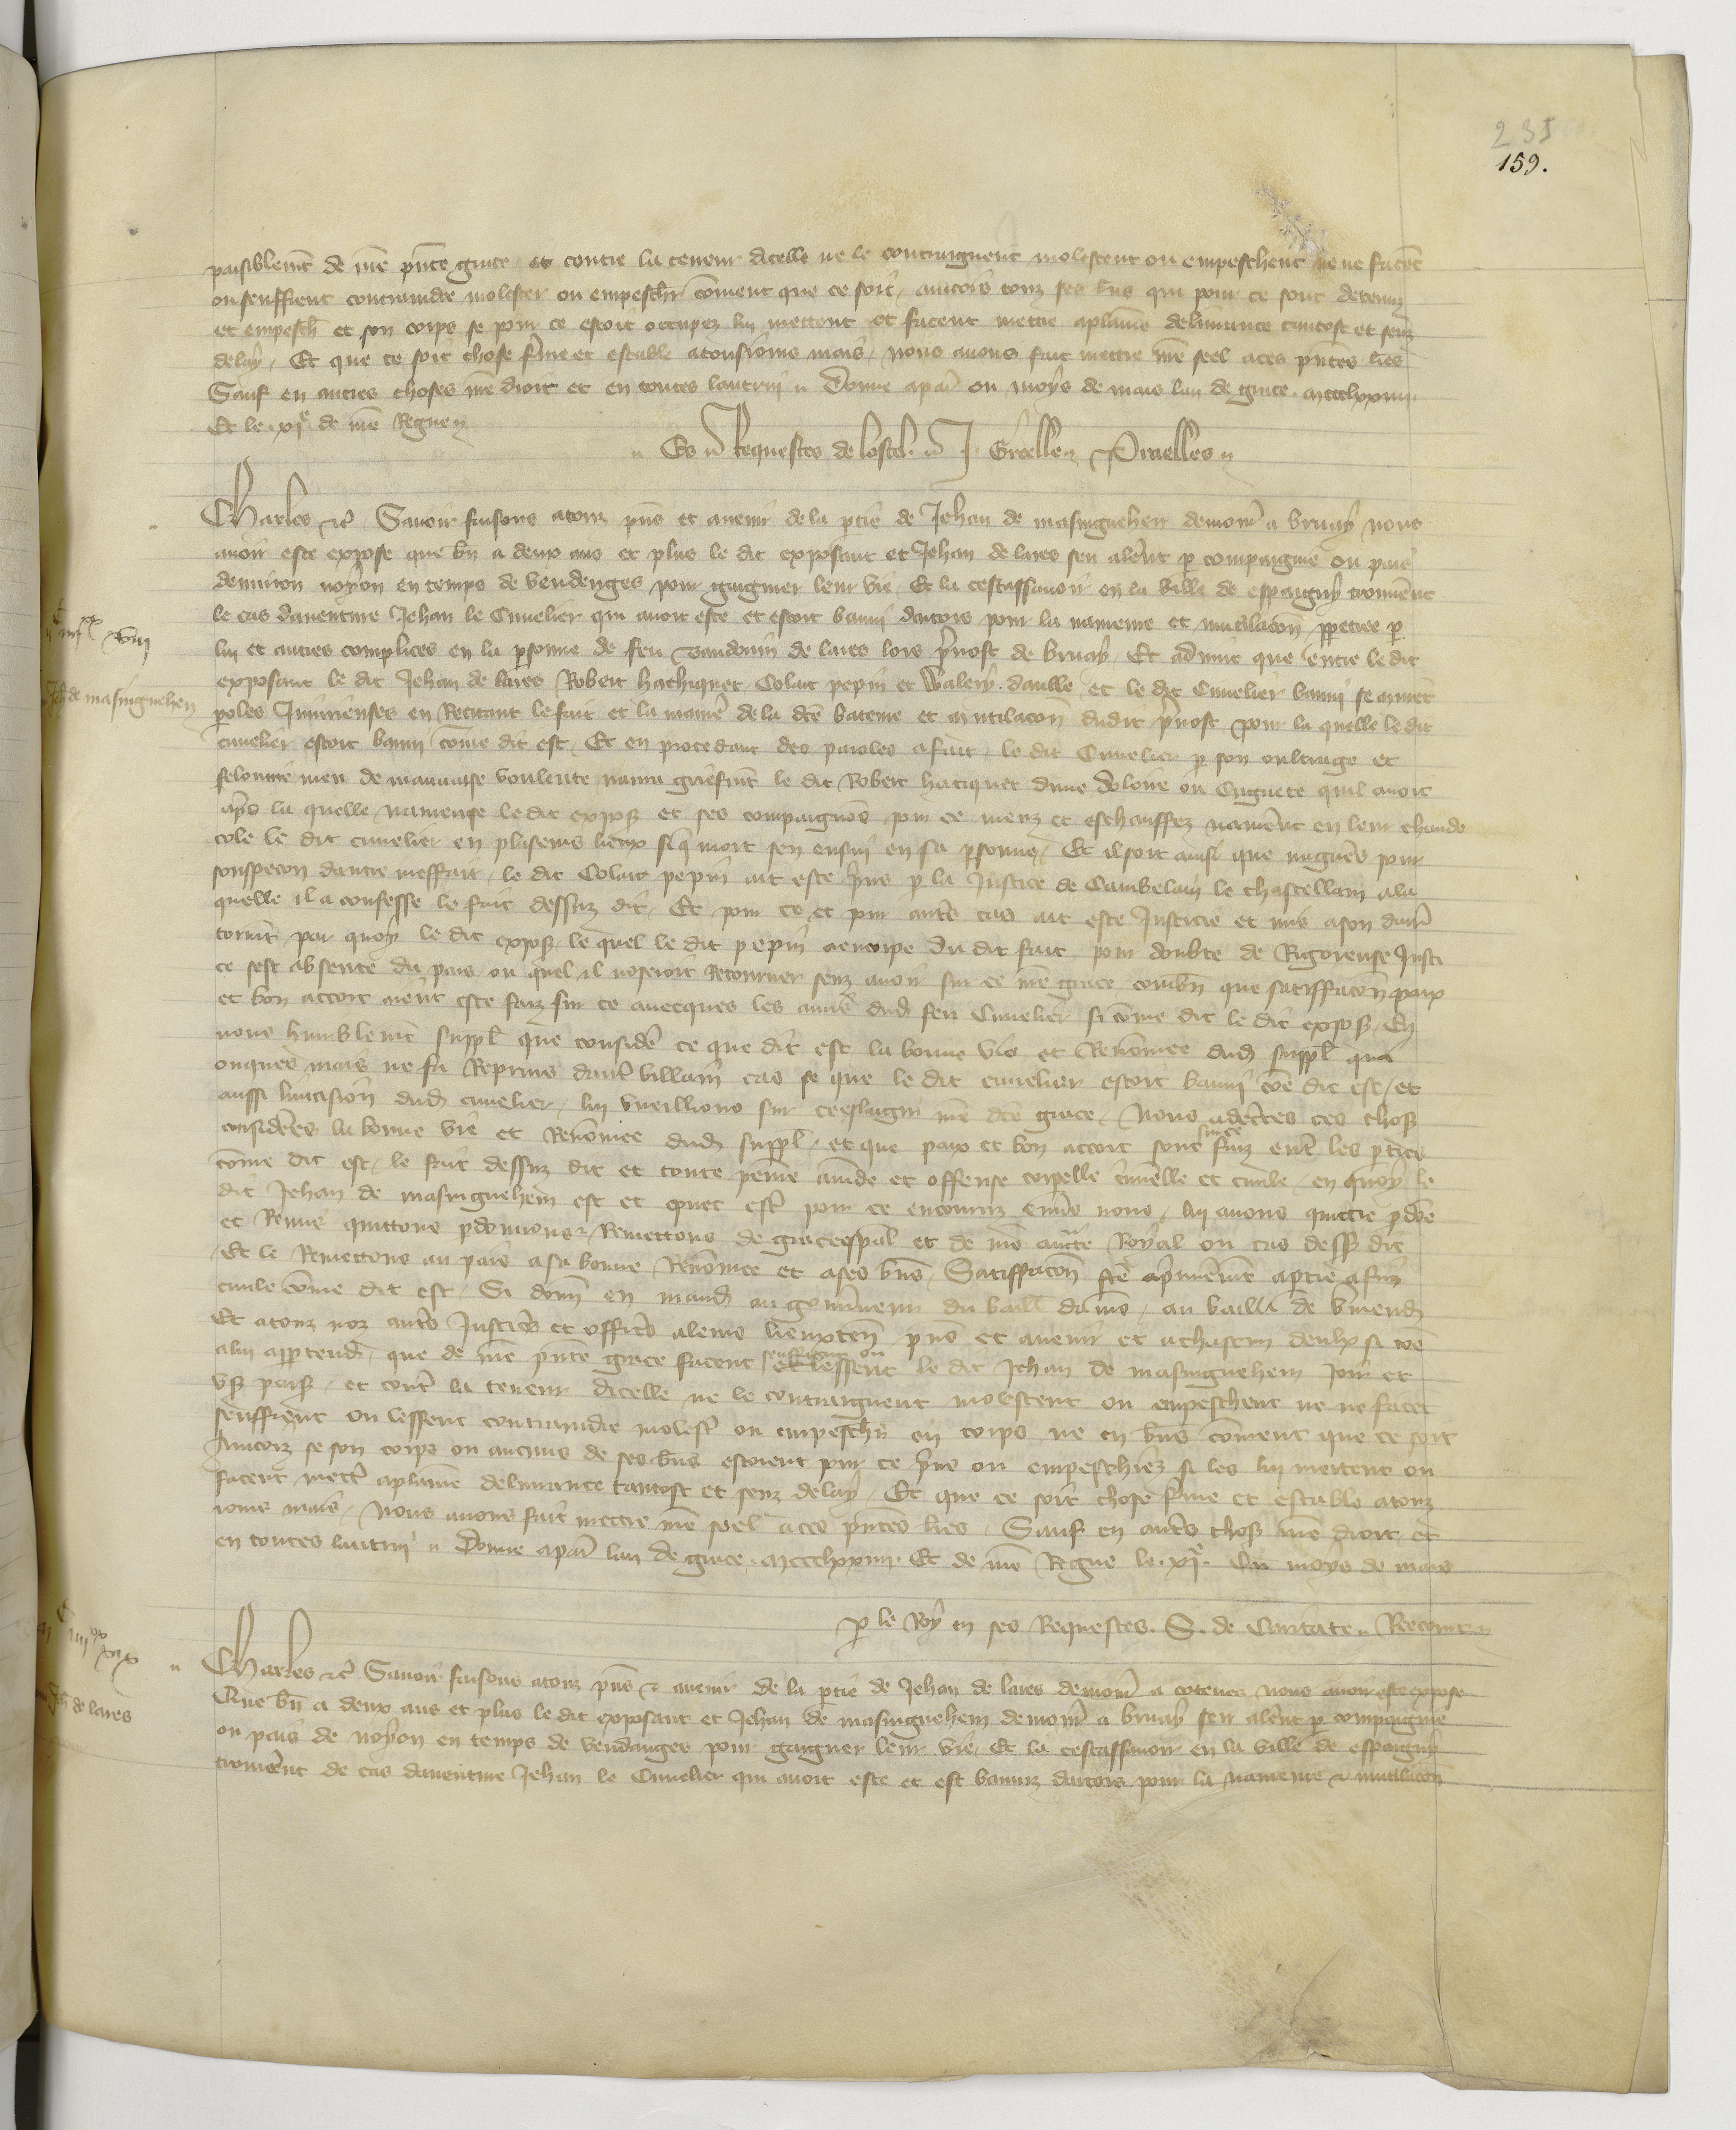 235
159.
paisiblemt de nre pnte grace et contre la teneur dicelle ne le contraignent molestent ou empeschent ne ne facēt
ou seuffrent contraindre molester ou empeschr cōment que ce soit, aincois touz ses bns qui pour ce sont detenuz
et empesch et son corps se pour ce estoit occupez lui mettent et facent mettre a plaine delivrance tantost et senz
delay, Et que ce soit chose ferme et estable a tousiours mais, nous avons fait mettre nre seel a ces pntes lres
Sauf en autres choses nre droit et en toutes lautruy Donne a par ou moys de mars lan de grace mccclxxiiii
Et le xie de nre Regne
Es Requestes de lostel J. Greelle Praelles
Charles etc Savoir faisons a touz pns et avenir de la ptie de Jehan de masinguehen demour a bruay nous
avoir este expose que bn a deux ans et plus le dit exposant et Jehan de lares sen alerent p compaignie ou pais
denviron noyon en temps de vendenges pour gaigner leur vie, Et la cestassavoir en la ville de espaigny trouverēt
le cas daventure Jehan le Cuvelier qui avoit este et estoit banni dartois pour la navreure et mutilacon ppetree p
lui et autres complices en la psonne de feu Baudouin de lares lors prevost de bruay, Et advint que entre le dit
exposant le dit Jehan de lares Robert hachiquet Colart pepin et Walery daulle et le dit Cuvelier banni se murēt
poles Iniurieuses en Recitant le fait et la maniere de la dce bateure et mutilacon dudit prevost pour la quelle le dit
cuvelier estoit banni cōme dit est, Et en procedant des paroles a fait, le dit Cuvelier p son oultrage et
felonnie meu de mauvaise voulente navra griefmt le dit Robert hatiquet dune doloire ou Cuguete quil avoit
aps la quelle navreure le dit expos et ses compaignōs pour ce meuz et eschauffez navrerent en leur chaude
cole le dit cuvelier en plusieurs lieux si q mort sen ensui en sa psonne, Et il soit ainsi que nagueres pour
souspecon dautre meffait, le dit Colart pepin ait este prins p la Justice de Cambelain le chastellain a la
quelle il a confesse le fait dessuz dit, Et pour ce et pour autres cas ait este Justicie et mis a son darn
torint, par quoy le dit expos lequel le dit pepin a encorpe du dit fait pour doubte de Rigoreuse Justi
ce sest absente du pais, ou quel il noseroit Retourner senz avoir sur ce nre grace, combn que satiffacon paix
et bon accort aient este faiz sur ce avecques les amis dud feu Cuvelier si cōme dit le dit expos, En
nous humblemt suppl que considere ce que dit est la bonne vie et Renōmee dud suppl qui
onques mais ne fu Reprins dautre villain cas se que le dit cuvelier estoit banni cōe dit est, et
aussi linvasion dud cuvelier, lui vueillions sur ce eslargir nre dce grace, Nous adcertes ces chos
considerees la bonne vie et Renōmee dud suppl, et que paix et bon accort sont sur ce faiz entre les pties
cōme dit est, le fait dessuz dit et toute peine amēde et offense corpelle criminelle et civile, en quoy le
dit Jehan de masinguehem est et puet estre pour ce encouruz envers nous, lui avons quittie pdōe
et Remis quittons pdonnons Remettons de grace espal et de nre aucte Royal ou cas dess dit
Et le Remettons au pais a sa bonne Renōmee et a ses bns, Satiffacon fte pmieremt a ptie a fin
civile cōme dit est, Si donn en mand au gouverneur du baill damiens, au bailli de Vmend
Et a touz noz autres Justiciers et officiers a leurs lieuxten pns et avenir et a chascun deulx si cōe
a lui apptend, que de nre pnte grace facent seuffrent ou et lessent le dit Jehan de masinguehem Joir et
us pais, et contre la teneur dicelle ne le contraignent molestent ou empeschent ne ne facēt
seuffrent ou lessent contraindre molestr ou empeschier en corps ne en bns cōment que ce soit
Aincoiz se son corps ou aucuns de ses bns estoient pour ce prins ou empeschiez si les lui mettent ou
facent mettre a plaine delivrance tantost et senz delay, Et que ce soit chose ferme et estable a touz
iours mais, Nous avons fait mettre nre seel a ces pntes lres, Sauf en autres chos nre droit, et
en toutes lautruy Donne a par lan de grace mccclxxiiii Et de nre Regne le xie Ou moys de mars
p le Roy en ses Requestes. S. de Caritate Recomtr
Charles etc Savoir faisons a touz pns et avenir de la ptie de Jehan de lares demour a cotenes nous avoir este expose
Que bn a deux ans et plus le dit exposant et Jehan de masinguehem demour a bruay sen alerent p compaignie
ou pais de noyon en temps de vendanges pour gaigner leur vie, Et la cestassavoir en la ville de espaigny
trouverent de cas daventure Jehan le Cuvelier qui avoit este et est banniz dartois pour la navreure et mutilacon
iiiixx xviii
Jeh de masinguehen
iiiixx xix
Jeh de lares